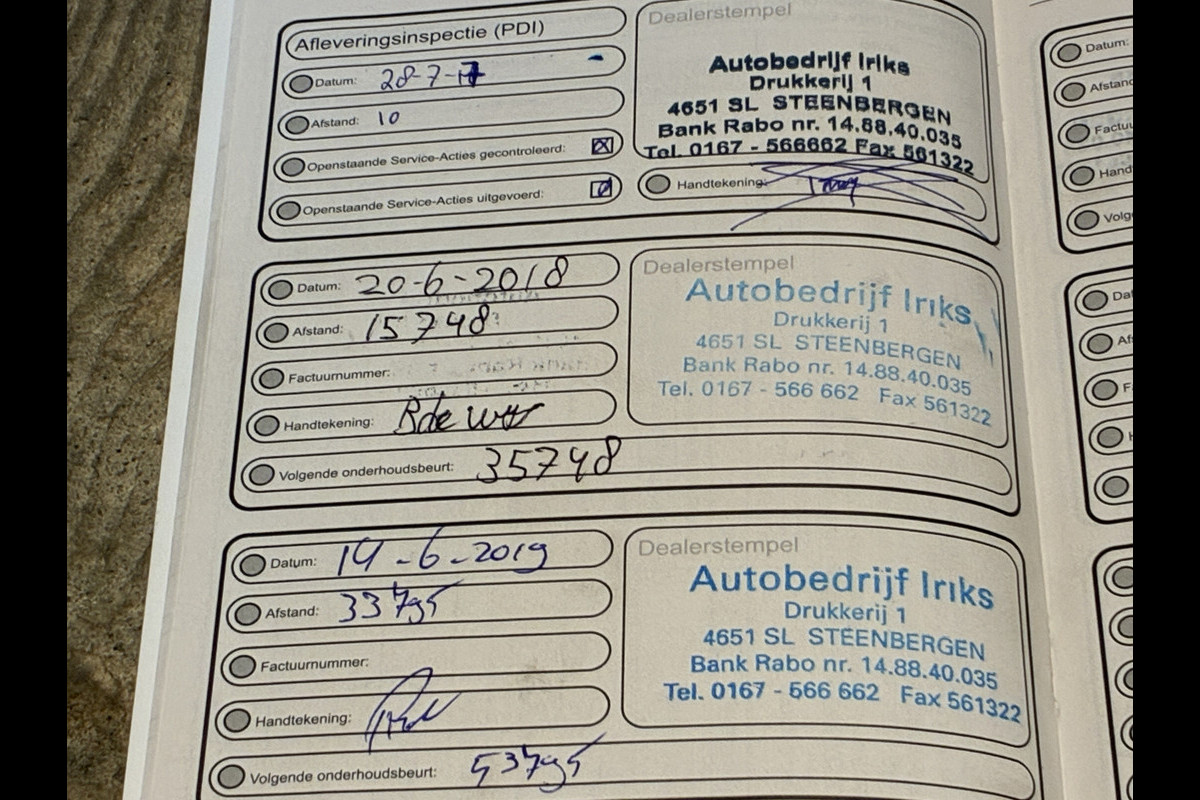 Afleveringsinspectie (PDI)
Datum: 28-7-17
Afstand: 10
Openstaande Service-Acties gecontroleerd:
Openstaande Service-Acties uitgevoerd:
Dealerstempel
Autobedrijf Iriks
Drukkerij 1
4651 SL STEENBERGEN
Bank Rabo nr. 14.88.40.035
Tel. 0167 - 566662 Fax 561322
Handtekening:
Datum: 20-6-2018
Afstand: 15748
Factuurnummer:
Handtekening:
Volgende onderhoudsbeurt: 35748
Dealerstempel
Autobedrijf Iriks
Drukkerij 1
4651 SL STEENBERGEN
Bank Rabo nr. 14.88.40.035
Tel. 0167 - 566 662 Fax 561322
Datum: 14-6-2019
Afstand: 33795
Factuurnummer:
Handtekening:
Volgende onderhoudsbeurt: 53795
Dealerstempel
Autobedrijf Iriks
Drukkerij 1
4651 SL STEENBERGEN
Bank Rabo nr. 14.88.40.035
Tel. 0167 - 566 662 Fax 561322
Datum: